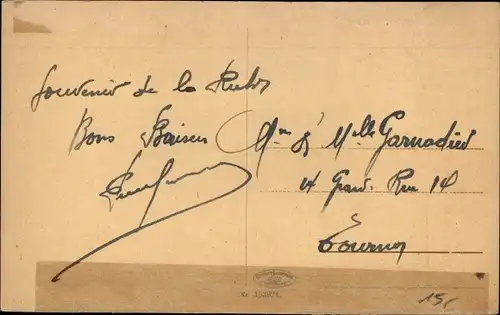 Souvenir de la Ruhr
Bons Baisers
Mme & Melle Garnadieu
14 Grand Rue 14
Tournon
No. 153907 L.
15,-